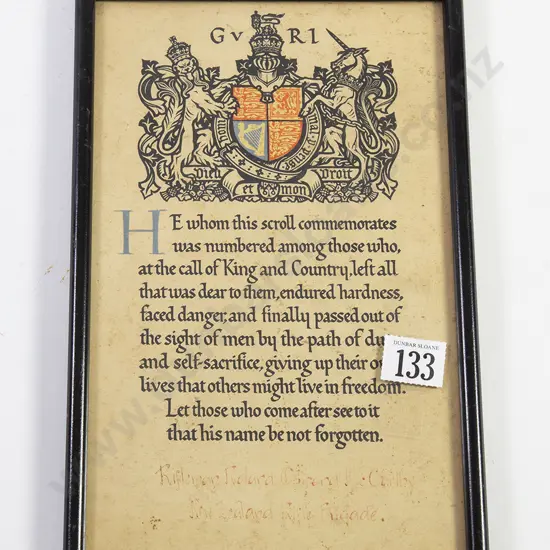 G V R I
Dieu et mon Droit
HE whom this scroll commemorates
was numbered among those who,
at the call of King and Country, left all
that was dear to them, endured hardness,
faced danger, and finally passed out of
the sight of men by the path of du
and self-sacrifice, giving up their o
lives that others might live in freedom.
Let those who come after see to it
that his name be not forgotten.
DUNBAR SLOANE
133
Rifleman
Rifle Brigade.